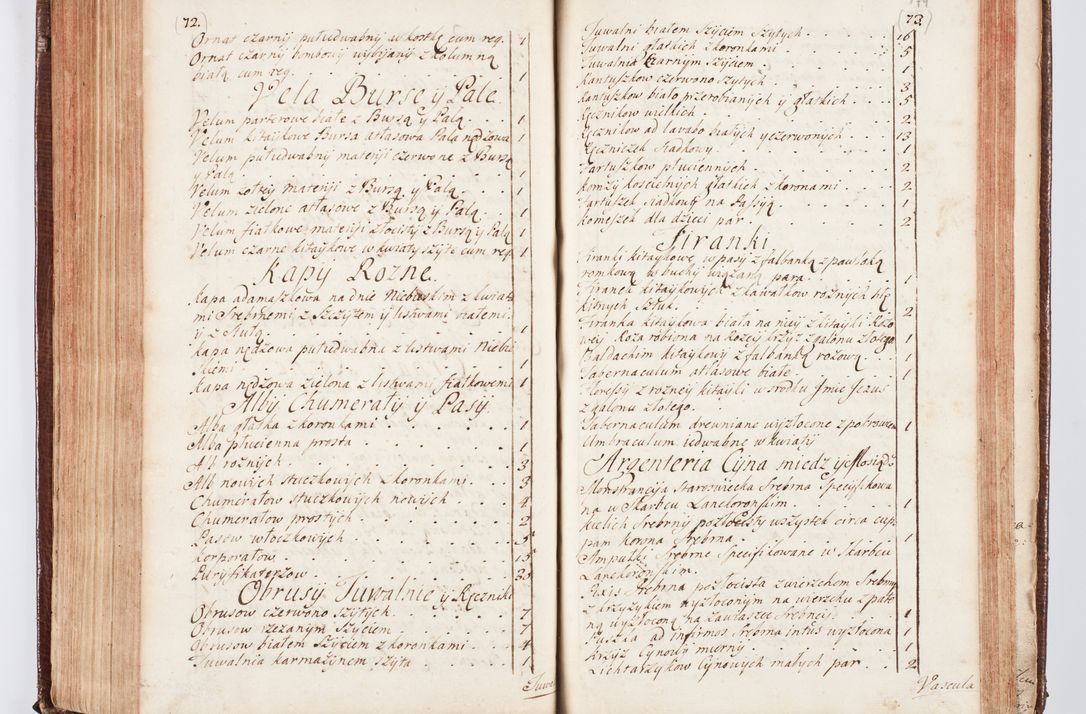 72.
Ornat czarnÿ pułiedwabnÿ w kostkę cum reg. 1
Ornat czarnÿ tombowÿ wÿbijanÿ z kolumną
białą cum reg. 1
Vela Burse ÿ Pale
Velum parterowe białe z Bursą ÿ Palą 1
Velum kitaÿkowe Bursa atłasowa Pala nędzowa 1
Velum pułiedwabnÿ materÿi czerwone z Bursą
ÿ Palą 1
Velum zołteÿ materÿi z Bursą ÿ Palą 1
Velum zielone atłasowe z Bursą ÿ Palą 1
Velum fiałkowe materÿi złocistÿ z Bursą ÿ Palą 1
Velum czarne kitaÿkowe w kwiatÿ szÿte cum reg. 1
Kapÿ Rozne.
Kapa adamaszkowa na dnie Niebieskim z kwiata
mi Srebrnemi z Szczÿtem ÿ listwami
ÿ z Stułą 1
Kapa nędzowa pułiedwabna z listwami Niebie
skiemi 1
Kapa nędzowa zielona z listwamÿ fiałkowemi 1
Albÿ Chumerałÿ ÿ Pasÿ
Alba głatka z koronkami 1
Alba płucienna prosta 1
Alb roznÿch 3
Alb nowÿch stuczkowÿch z koronkami 3
Chumerałow stuczkowÿch nowÿch 4
Chumerałow prostÿch 2
Pasow włoczkowÿch 5
Korporałow 15
Purÿfikaterzow 30
Obrusÿ Tuwalnie ÿ Ręczniki
Obrusow czerwono szÿtÿch 7
Obrusow rzezanÿm szÿciem 7
Obrusow białem Szÿciem z koronkami 4
Tuwalnia karmazÿnem szÿta 1
Tuwa
73.
Tuwalni białem Szÿciem Szÿtÿch 16
Tuwalni głatkich z koronkami 5
Tuwalnia czarnÿm Szÿciem 1
Rantuszkow czerwono szÿtÿch 3
Rantuszkow biało przerobianÿch ÿ głatkich 5
Ręcznikow wielkich 2
Ręcznikow ad lavabo białÿch ÿ czerwonÿch 13
Ręczniczek siadkowÿ 1
Fartuszkow płuciennÿch 2
Komzÿ koscielnÿch głatkich z koronami 2
Fartuszek siadkowÿ na Pasÿą 1
Komeszek dla dzieci par 2
Firanki
Firanki kitaÿkowe w pasÿ z falbanką z pawłoką
romkową w buchÿ wiązaną para 1
Firanek kitaÿkowÿch z kawałkow roznÿch błę
kitnÿch Sztuk 2
Firanka kitaÿkowa biała na nieÿ z kitaÿki Rożo
weÿ Roża robiona na rożeÿ krzÿż z galonu złotego 1
Baldachim kitaÿkowÿ z falbanką rożową 1
Tabernaculum atłasowe białe 1
Floressÿ z rozneÿ kitaÿki w srodku Jmie Jezus
z galonu złotego
Tabernaculum drewniane wÿzłocone z potrzewem 1
Umbraculum iedwabne w kwiatÿ
Argenteria Cÿna miedz ÿ Mosiądz
Monstrancÿia Staroswiecka Srebrna Specÿfikowa
na w Skarbcu Lanckoronskim 1
Kielich Srebrnÿ pozłocistÿ wszÿstek circa cup
pam korona Srebrna 1
Ampułki Srebrne Specifikowane w Skarbcu
Lanckoronskim.
Pixis Srebrna pozłocista z wierzchem Srebrnÿ
z krzÿżÿkiem wÿzłoconÿm na wierzchu z pate
ną wÿzłoconą na zawiasce Srebneÿ 1
Puszka ad infirmos Srebrna intus wÿzłocona 1
Krzÿż Cÿnowÿ miernÿ 1
Lichtarzÿkow Cÿnowÿch małÿch par 2
Vascula